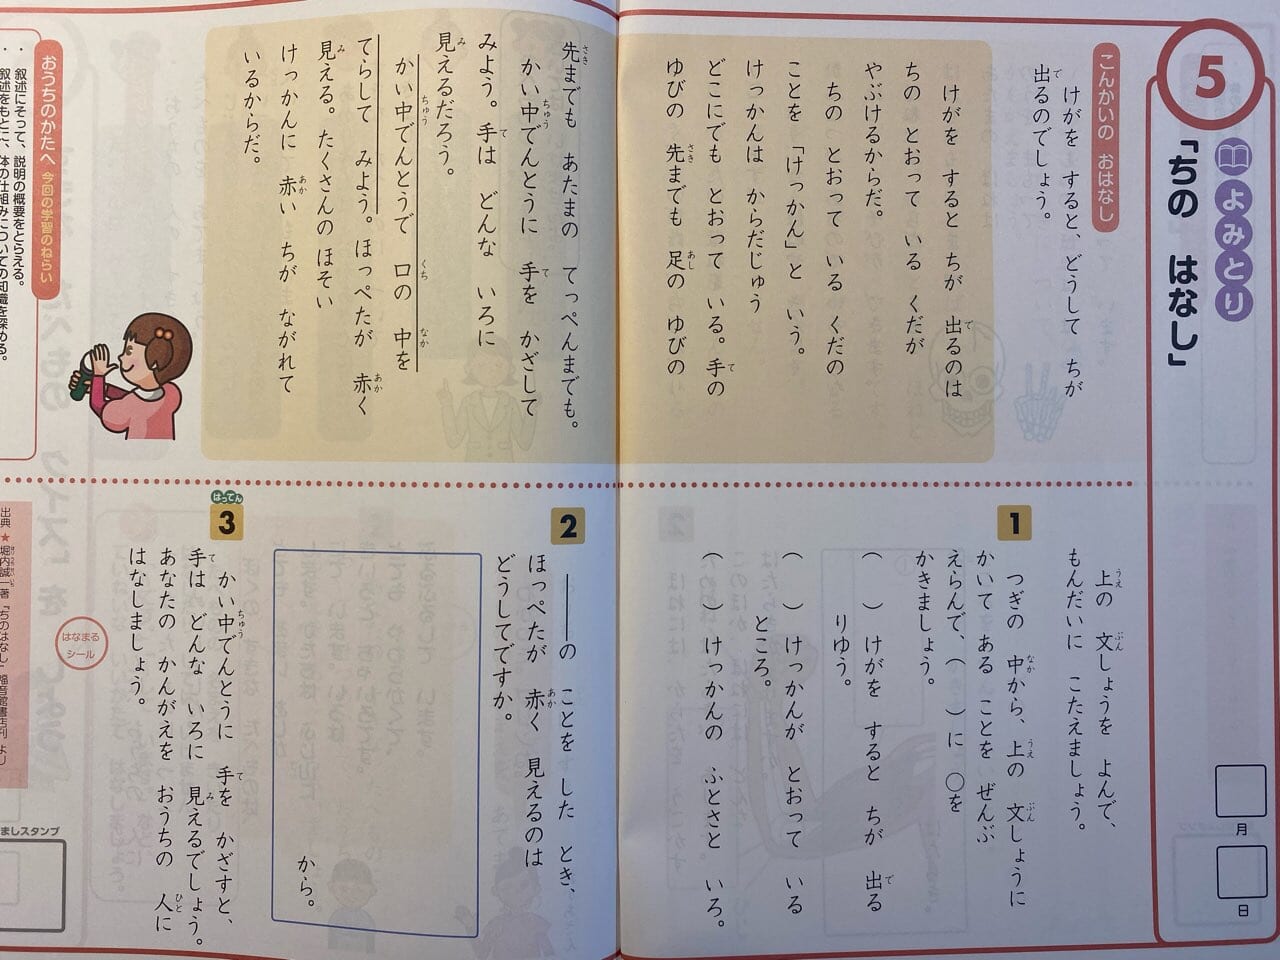 5
よみとり
「ちの はなし」
月
日
こんかいの おはなし
けがを すると、どうして ちが
出るのでしょう。
けがを すると ちが 出るのは
ちの とおって いる くだが
やぶけるからだ。
ちの とおって いる くだの
ことを 「けっかん」と いう。
けっかんは からだじゅう
どこにでも とおって いる。手の
ゆびの 先までも 足の ゆびの
先までも あたまの てっぺんまでも。
かい中でんとうに 手を かざして
みよう。手は どんな いろに
見えるだろう。
かい中でんとうで 口の 中を
てらして みよう。ほっぺたが 赤く
見える。たくさんの ほそい
けっかんに 赤い ちが ながれて
いるからだ。
おうちのかたへ 今回の学習のねらい
・叙述にそって、説明の概要をとらえる。
・叙述をもとに、体の仕組みについての知識を深める。
上の 文しょうを よんで、
もんだいに こたえましょう。
1
つぎの 中から、上の 文しょうに
かいて ある ことを ぜんぶ
えらんで、( )に ○を
かきましょう。
( ) けがを すると ちが 出る
りゆう。
( ) けっかんが とおって いる
ところ。
( ) けっかんの ふとさと いろ。
2
――の ことを した とき、
ほっぺたが 赤く 見えるのは
どうしてですか。
から。
はってん
3
かい中でんとうに 手を かざすと、
手は どんな いろに 見えるでしょう。
あなたの かんがえを おうちの 人に
はなしましょう。
はなまる
シール
出典★堀内誠一著「ちのはなし」福音館書店刊 より
ましスタンプ